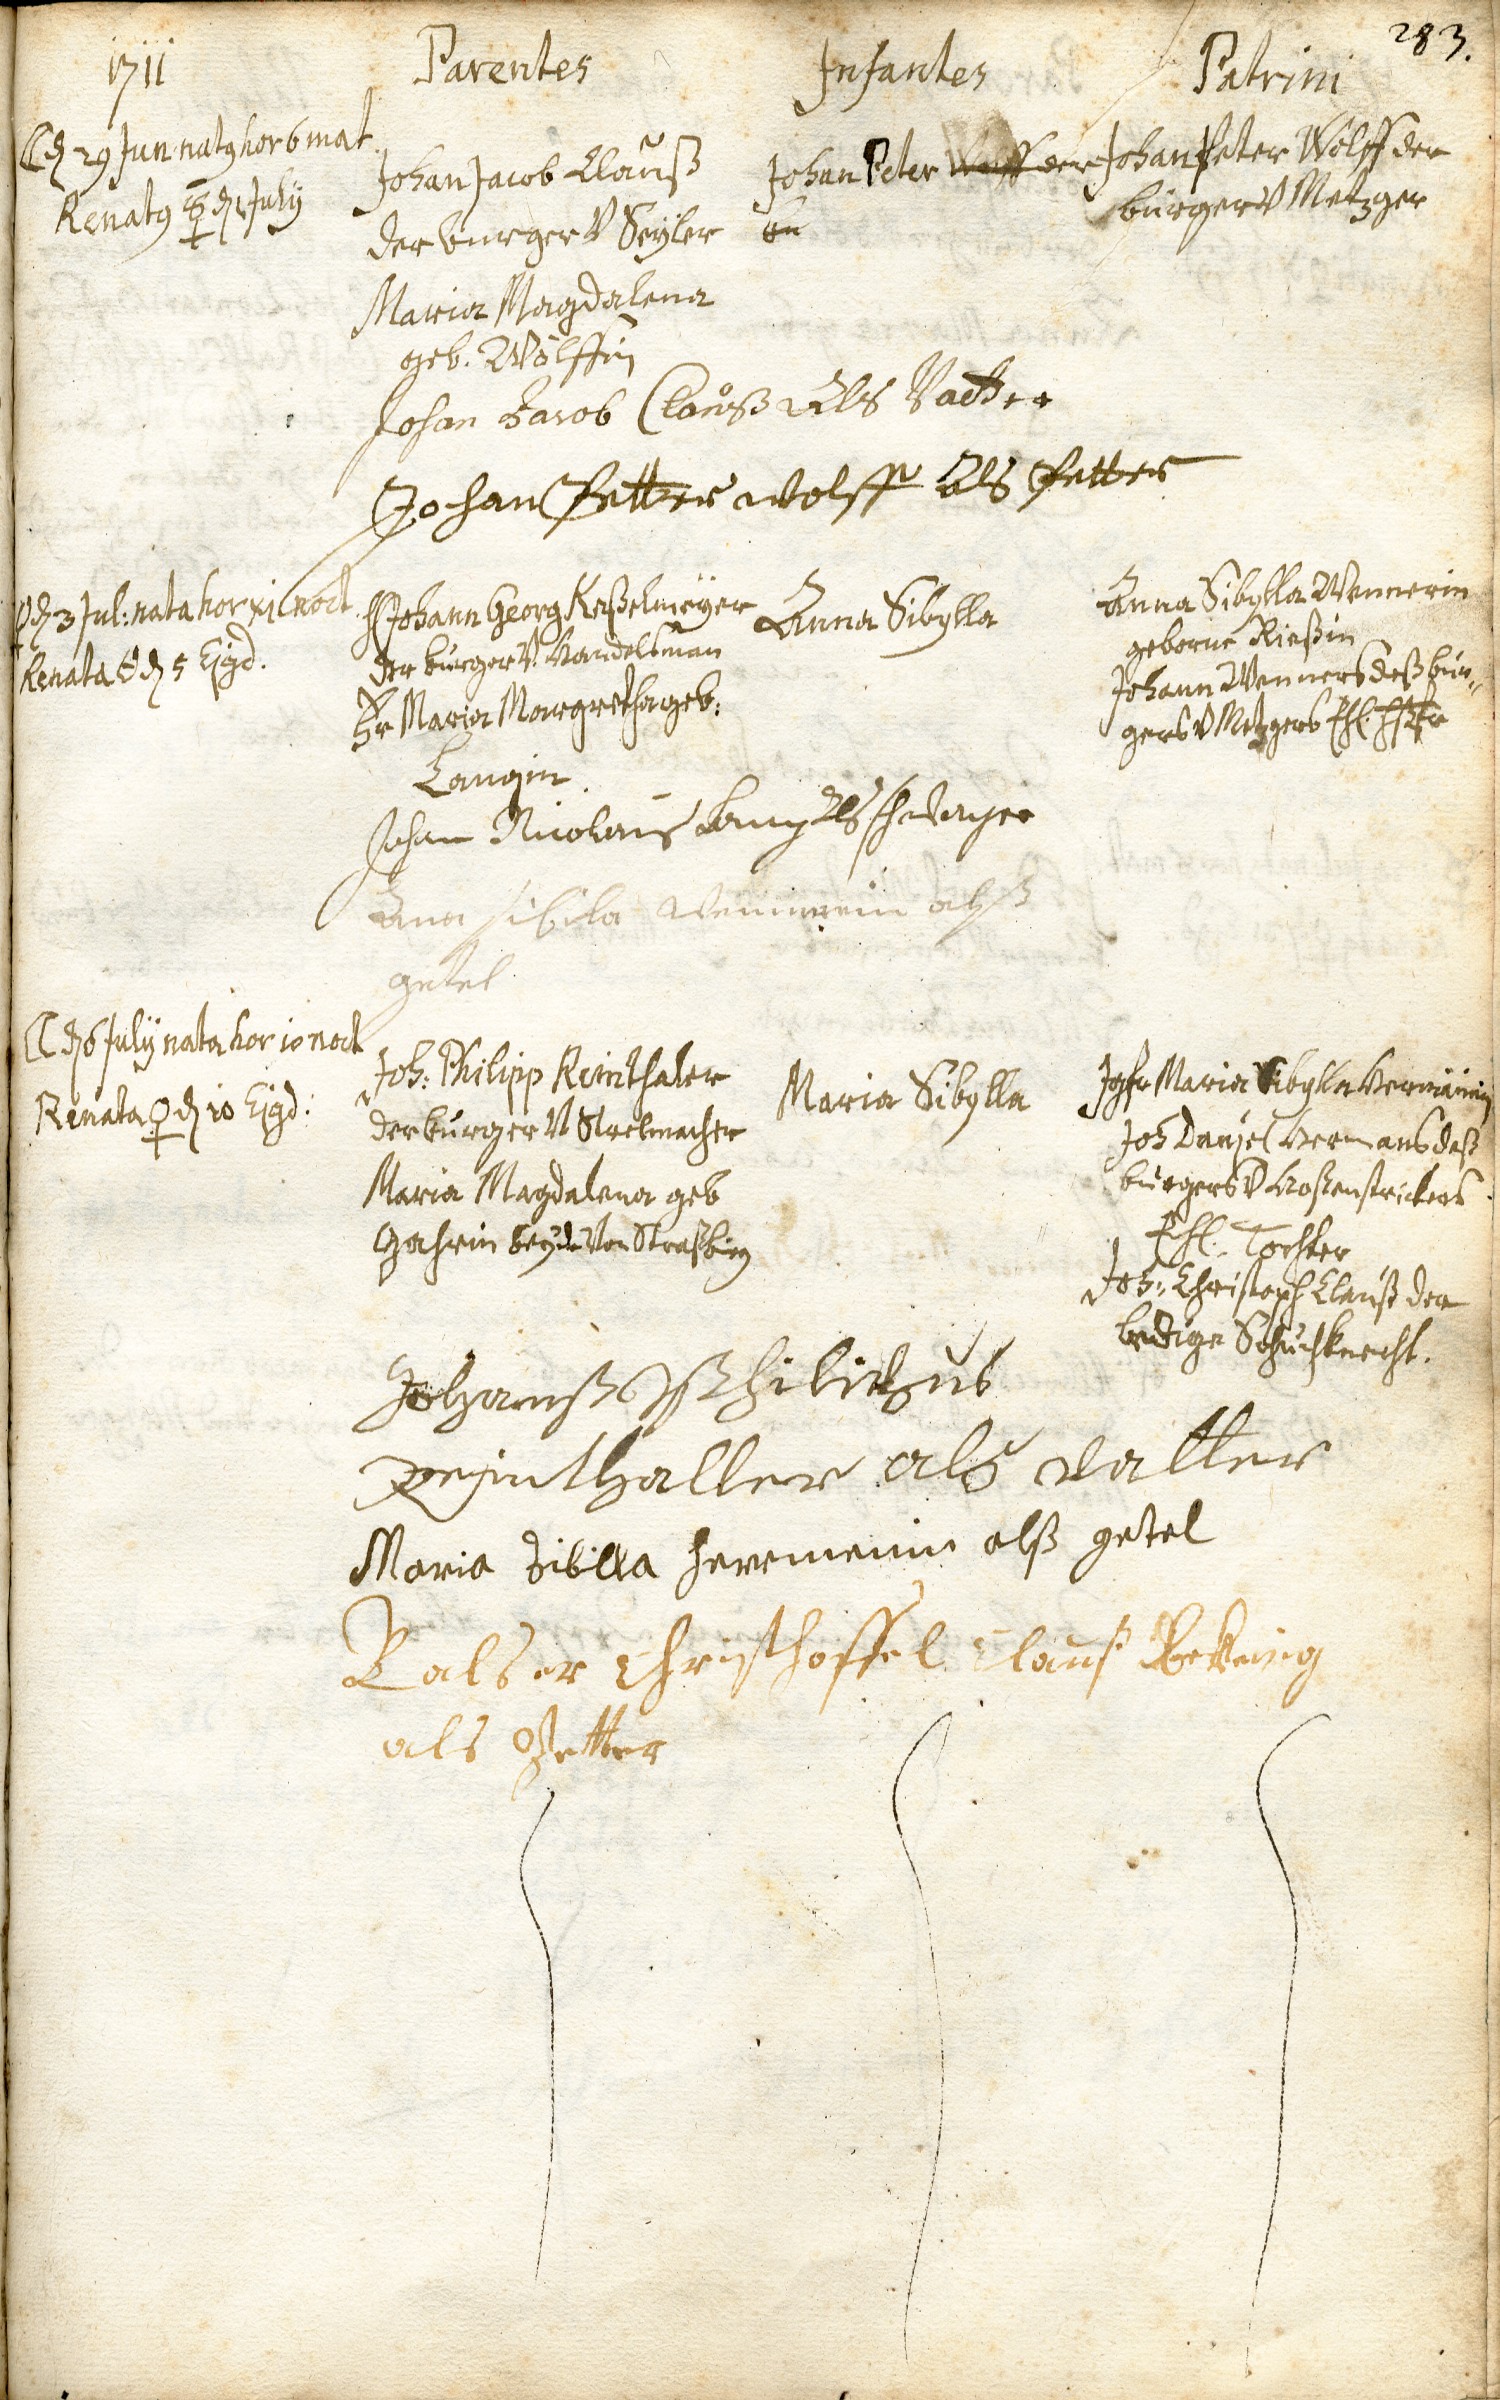 283.
1711
Parentes
Infantes
Patrini
☾ d 29 Jun. natq hor 6 mat.
Renatq ☿ d 1 July
Johan Jacob Clauß
der burger V Seyler
Maria Magdalena
geb. Wölffin
Johan Peter
Johan Peter Wolff der
burger V Metzger
Johan Jacob Clauß Als Vatter
Johan Petter wolff Als Petter
d 3 Jul: nata hor xi noct
Renata d 5 Ejgd.
H Johann Georg Kaßelmeyer
der burger V. Handelsman
Fr Maria Margretha geb:
Langin
Anna Sibylla
Anna Sibylla Wennerin
geborne Rießin
Johann Wenners deß bur-
gers V Metzgers Ehl.
Johan Nicolaus Lang Als schwager
Ana sibila Wennerin alß
getel
☾ d 6 July nata hor 10 noct
Renata ♀ d 10 Ejgd:
Joh: Philipp Reinthaler
der burger V Strelmacher
Maria Magdalena geb
beyde Von Straßburg
Maria Sibylla
Jgfr Maria Sibylla Hermännin
Joh Danjel Hermans deß
burgers V Hosenstrickers
Ehl. Tochter
Joh: Christoph Clauß der
ledige Schuchknecht.
Johanß
reinthaller als vatter
Maria Sibilla hermenin alß getel
Christhoffel Clauß
als Petter